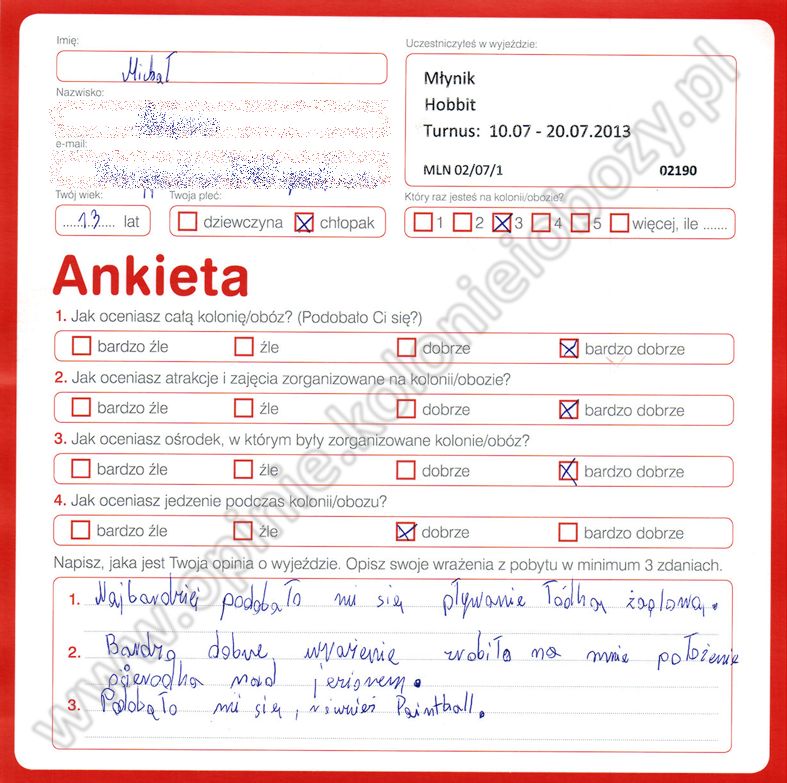 Imię:
Michał
Nazwisko:
e-mail:
Twój wiek:
13 lat
Twoja płeć:
dziewczyna chłopak
Uczestniczyłeś w wyjeździe:
Młynik
Hobbit
Turnus: 10.07 - 20.07.2013
MLN 02/07/1 02190
Który raz jesteś na kolonii/obozie?
1 2 3 4 5 więcej, ile .......
Ankieta
1. Jak oceniasz całą kolonię/obóz? (Podobało Ci się?)
bardzo źle źle dobrze bardzo dobrze
2. Jak oceniasz atrakcje i zajęcia zorganizowane na kolonii/obozie?
bardzo źle źle dobrze bardzo dobrze
3. Jak oceniasz ośrodek, w którym były zorganizowane kolonie/obóz?
bardzo źle źle dobrze bardzo dobrze
4. Jak oceniasz jedzenie podczas kolonii/obozu?
bardzo źle źle dobrze bardzo dobrze
Napisz, jaka jest Twoja opinia o wyjeździe. Opisz swoje wrażenia z pobytu w minimum 3 zdaniach.
1. Najbardziej podobało mi się pływanie łódką żaglową.
2. Bardzo dobre wrażenie zrobiło na mnie położenie
ośrodka nad jeziorem.
3. Podobało mi się, również Paintball.
www.opinie.kolonieiobozy.pl